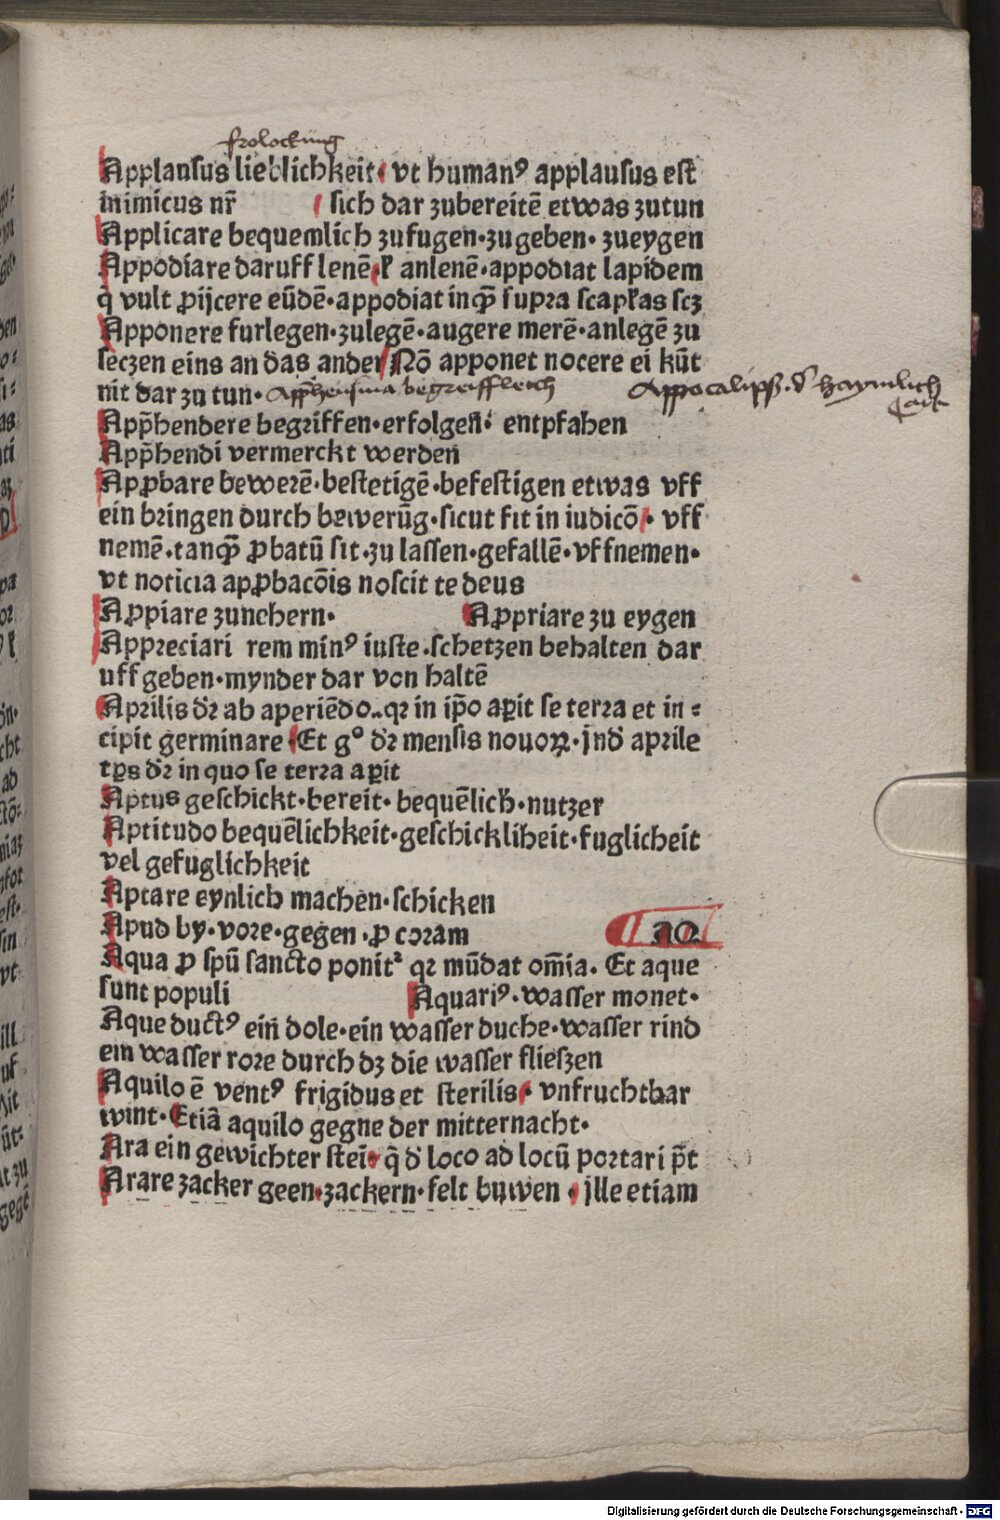 frolockung
Applausus lieblichkeit· vt humanꝰ applausus est
inimicus nr̄ sich dar zubereitē etwas zutun
Applicare bequemlich zufugen·zugeben· zueygen
Appodiare daruff lenē·ł anlenē·appodiat lapidem
q̇ vult ꝓijcere eūdē·appodiat inqꝫ̄ supra scapłas scꝫ
Apponere furlegen·zulegē·augere merē·anlegē zu
seczen eins an das ander Nō apponet nocere ei kūt
nit dar zu tun· App̄hensiua begreiffleich
Appocalipß·d' haymlich
App̄hendere begriffen·erfolgen· entpfahen
App̄hendi vermerckt werden
Apꝓbare bewerē·bestetigē·befestigen etwas vff
ein bringen durch bewerūg·sicut fit in iudicō· vff
nemē·tanqꝫ̄ ꝓbatū sit·zu lassen·gefallē·vffnemen·
vt noticia apꝓbacōis noscit te deus
Aꝓpiare zunehern·
Aꝓpriare zu eygen
Appreciari rem minꝰ iuste·schetzen behalten dar
uff geben·mynder dar von haltē
Aprilis dꝛ ab aperiēdo..qꝛ in ip̄o aꝑit se terra et in⸗
cipit germinare ·Et gº dꝛ mensis nouoꝝ·jnd aprile
tꝑs dꝛ in quo se terra aꝑit
Aptus geschickt·bereit· bequēlich·nutzer
Aptitudo bequēlichkeit·geschickliheit·fuglicheit
vel gefuglichkeit
Aptare eynlich machen·schicken
Apud by·vore·gegen·ꝓ coram
AQ
Aqua ꝓ spū sancto ponit² qꝛ mūdat om̄ia. Et aque
sunt populi
Aquariꝰ·wasser monet·
Aque ductꝰ ein dole·ein wasser duche·wasser rind
ein wasser rore durch dꝫ die wasser flieszen
Aquilo ē ventꝰ frigidus et sterilis· vnfruchtbar
wint·Etiā aquilo gegne der mitternacht·
Ara ein gewichter stei̅· q̄ d' loco ad locū portari p̄t
Arare zacker geen·zackern·felt buwen · jlle etiam
Digitalisierung gefördert durch die Deutsche Forschungsgemeinschaft - DFG